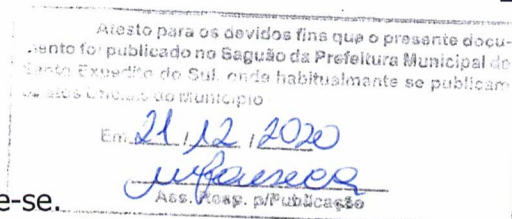 Atesto para os devidos fins que o presente docu-
mento foi publicado no Saguão da Prefeitura Municipal de
Santo Expedito do Sul, onde habitualmente se publicam
os atos Oficiais do Município
Em 21 / 12 / 2020
Ass. Resp. p/Publicação
e-se.